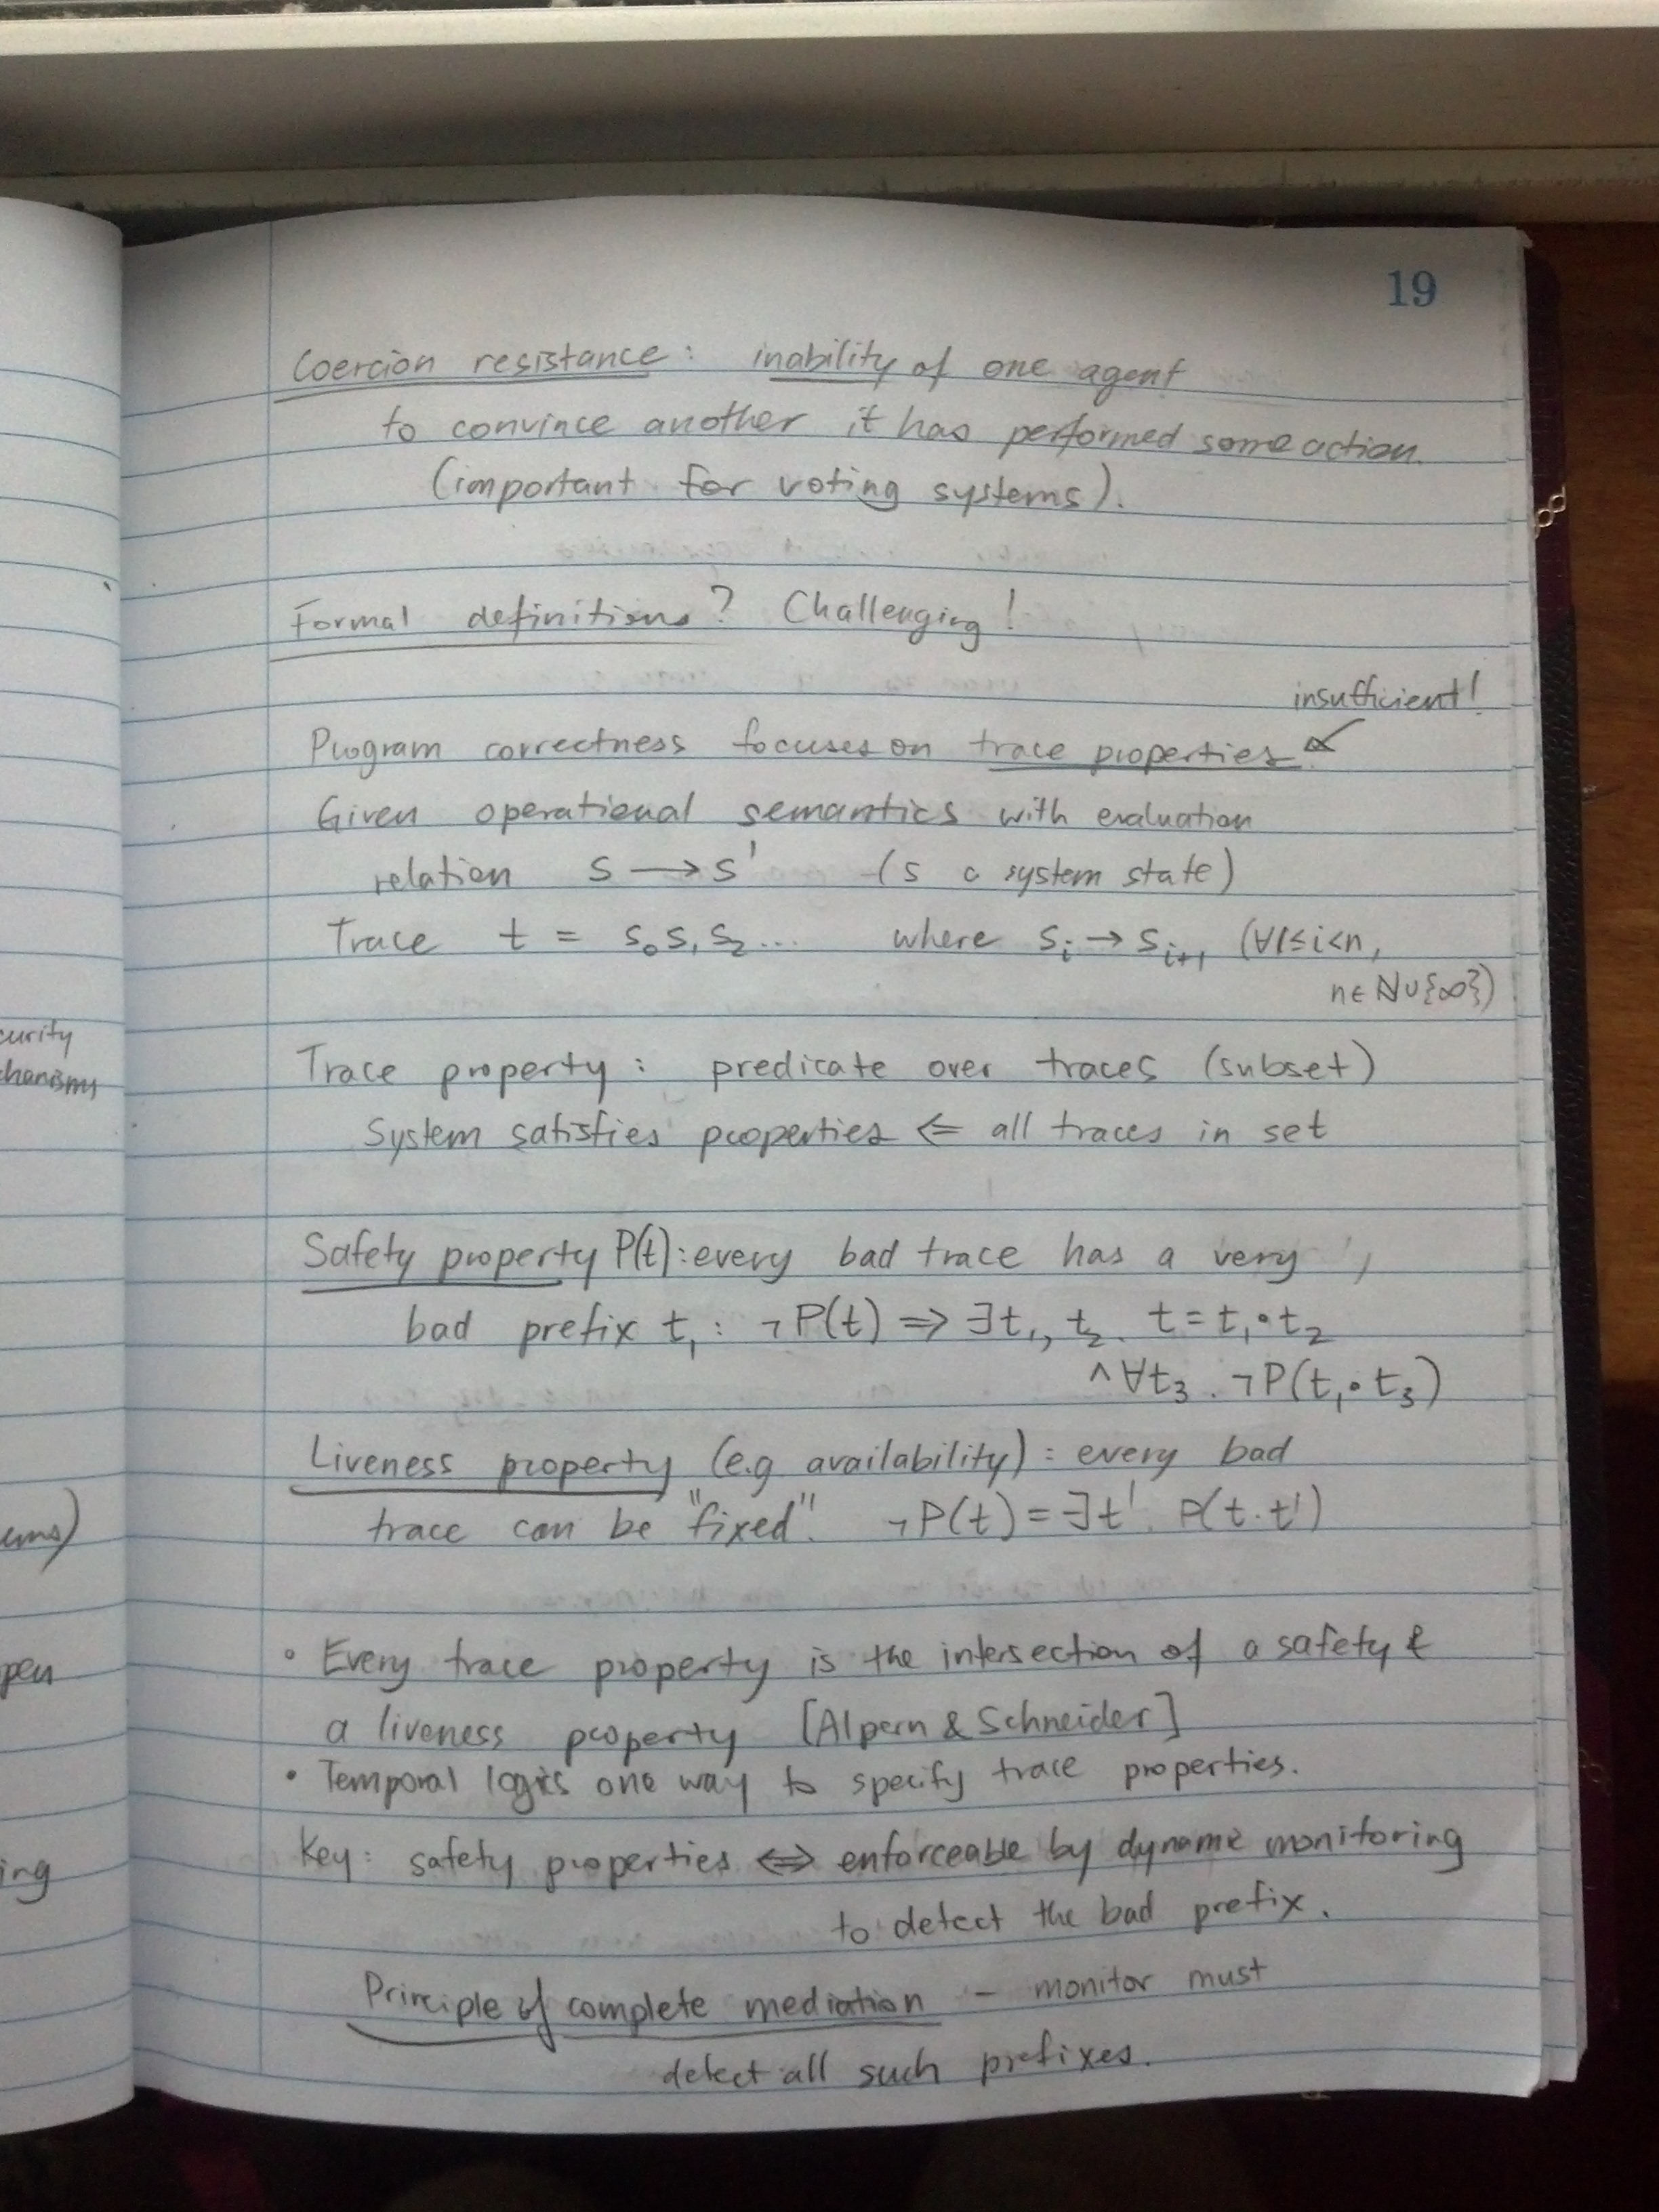 19
Coercion resistance: inability of one agent
to convince another it has performed some action.
(important for voting systems).
Formal definitions? Challenging!
insufficient!
Program correctness focuses on trace properties.
Given operational semantics with evaluation
relation s → s' (s a system state)
Trace t = s₀s₁s₂... where sᵢ → sᵢ₊₁ (∀1≤i<n,
n∈ℕ∪{∞})
Trace property: predicate over traces (subset)
System satisfies properties ⇐ all traces in set
Safety property P(t): every bad trace has a very
bad prefix t₁: ¬P(t) ⇒ ∃t₁, t₂. t = t₁•t₂
∧ ∀t₃. ¬P(t₁•t₃)
Liveness property (e.g availability): every bad
trace can be "fixed". ¬P(t) = ∃t'. P(t·t')
• Every trace property is the intersection of a safety &
a liveness property [Alpern & Schneider]
• Temporal logics one way to specify trace properties.
Key: safety properties ⇔ enforceable by dynamic monitoring
to detect the bad prefix.
Principle of complete mediation – monitor must
detect all such prefixes.
curity
chanisms
ems)
pen
ing